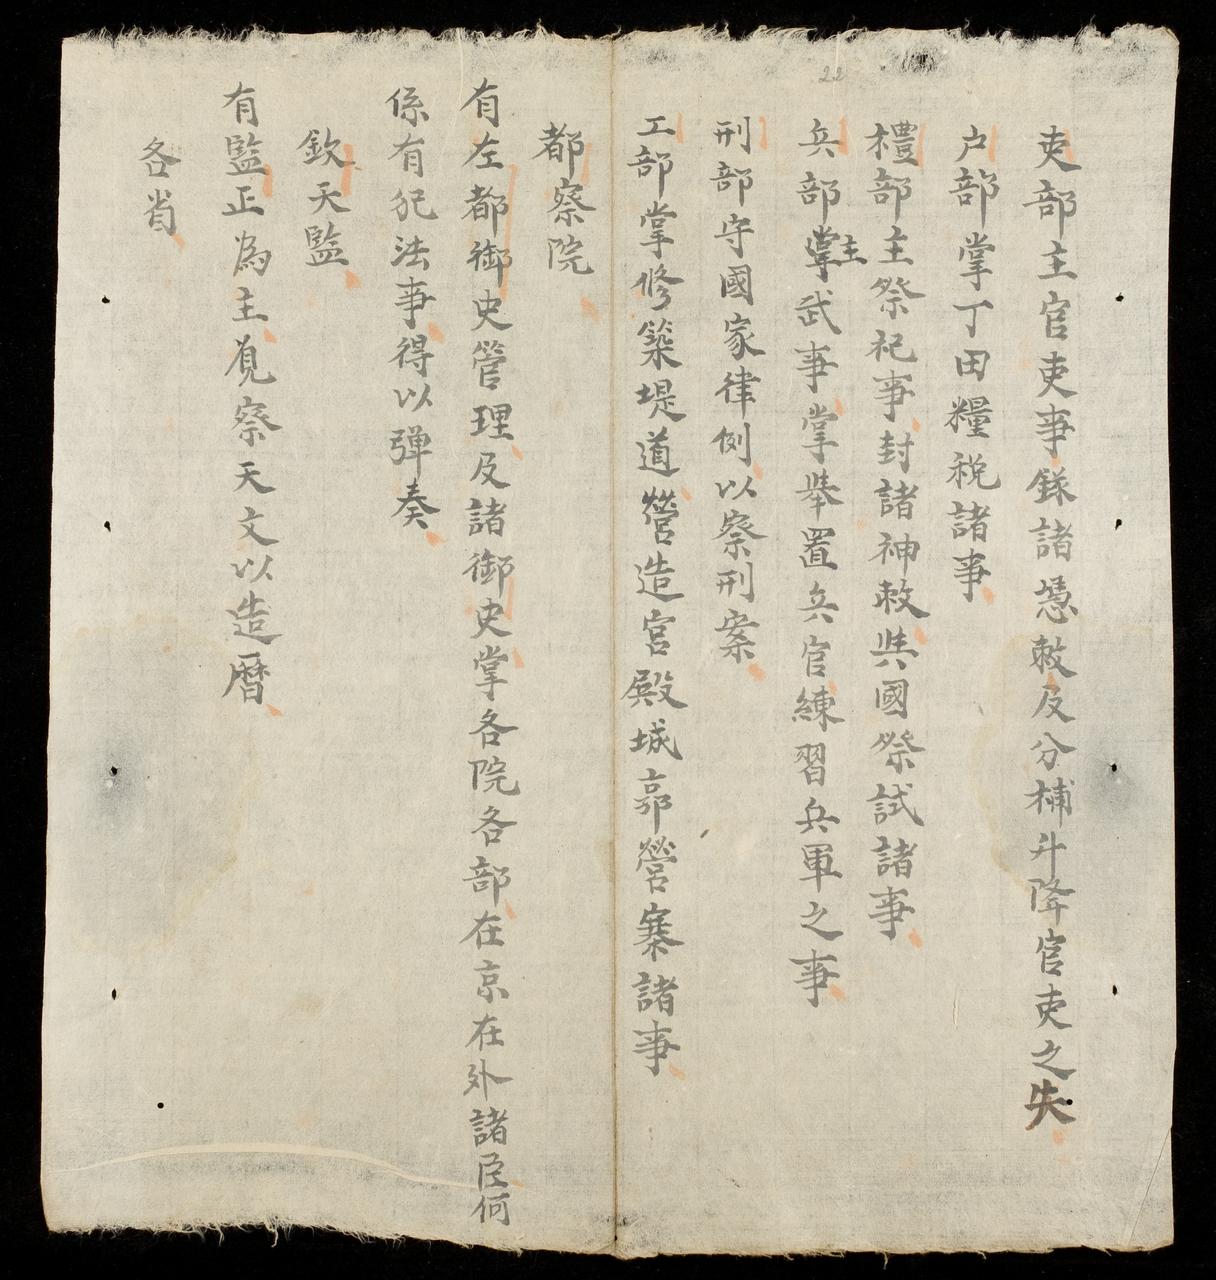 22
吏部主官吏事錄諸憑敕及分補升降官吏之失
户部掌丁田糧税諸事
禮部主祭祀事封諸神敕與國祭試諸事
兵部掌主武事掌舉置兵官練習兵軍之事
刑部守國家律例以察刑案
工部掌修築堤道營造宮殿城郭營寨諸事
都察院
有左都御史管理及諸御史掌各院各部在京在外諸臣何
係有犯法事得以弹奏
欽天監
有監正為主覓察天文以造曆
各省